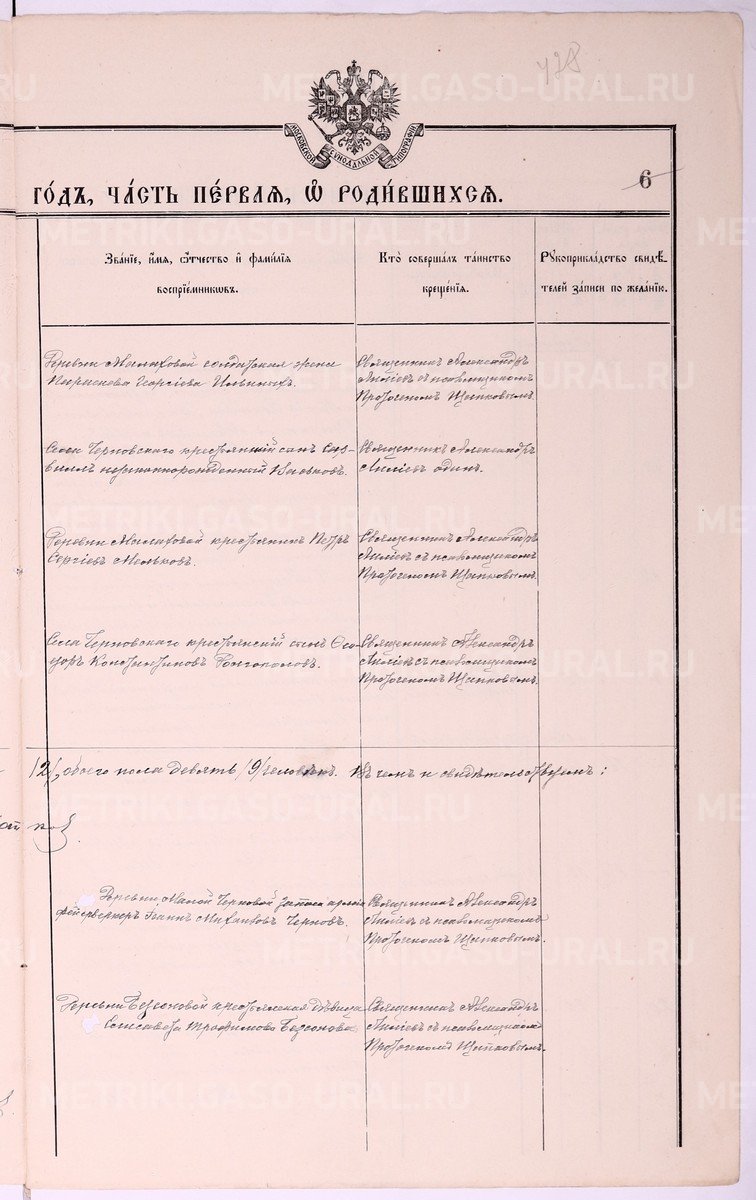 428
МОСКОВСКОЙ СѴНОДАЛЬНОЙ ТИПОГРАФІИ
6
ГО́ДЪ, ЧА́СТЬ ПЕ́РВАЯ, Ѡ҆ РОДИ́ВШИХСЯ.
Зва́нїе, и҆́мѧ, ѻ҆́тчество и҆ фами́лїѧ
воспрїе́мникѡвъ.
Кто̀ соверша́лъ та́инство
креще́нїѧ.
Рꙋкоприкла́дство свидѣ́-
телей за́писи по жела́нїю.
Деревни Малаховой солдатская жена
Параскева Георгіева Ильиныхъ.
Священникъ Александръ
Лиліевъ съ псаломщикомъ
Протогеномъ Щипковымъ.
Села Черновскаго крестьянскій сынъ
незаконнорожденный
Священникъ Александръ
Лиліевъ одинъ.
Деревни Малаховой крестьянинъ Петръ
Сергіевъ Мельковъ.
Священникъ Александръ
Лиліевъ съ псаломщикомъ
Протогеномъ Щипковымъ.
Села Черновскаго крестьянскій сынъ Ѳео-
доръ Константиновъ
Священникъ Александръ
Лиліевъ съ псаломщикомъ
Протогеномъ Щипковымъ.
/2/, обоего пола девять /9/ человѣкъ. Въ чемъ и свидѣтельствуемъ:
Деревни Малой Черновой запаса арміи
фейерверкеръ Іоаннъ Михаиловъ Черновъ.
Священникъ Александръ
Лиліевъ съ псаломщикомъ
Протогеномъ Щипковымъ.
Деревни Безсоновой крестьянская дѣвица
Елисавета Трофимова Безсонова
Священникъ Александръ
Лиліевъ съ псаломщикомъ
Протогеномъ Щипковымъ.
METRIKI.GASO-URAL.RU